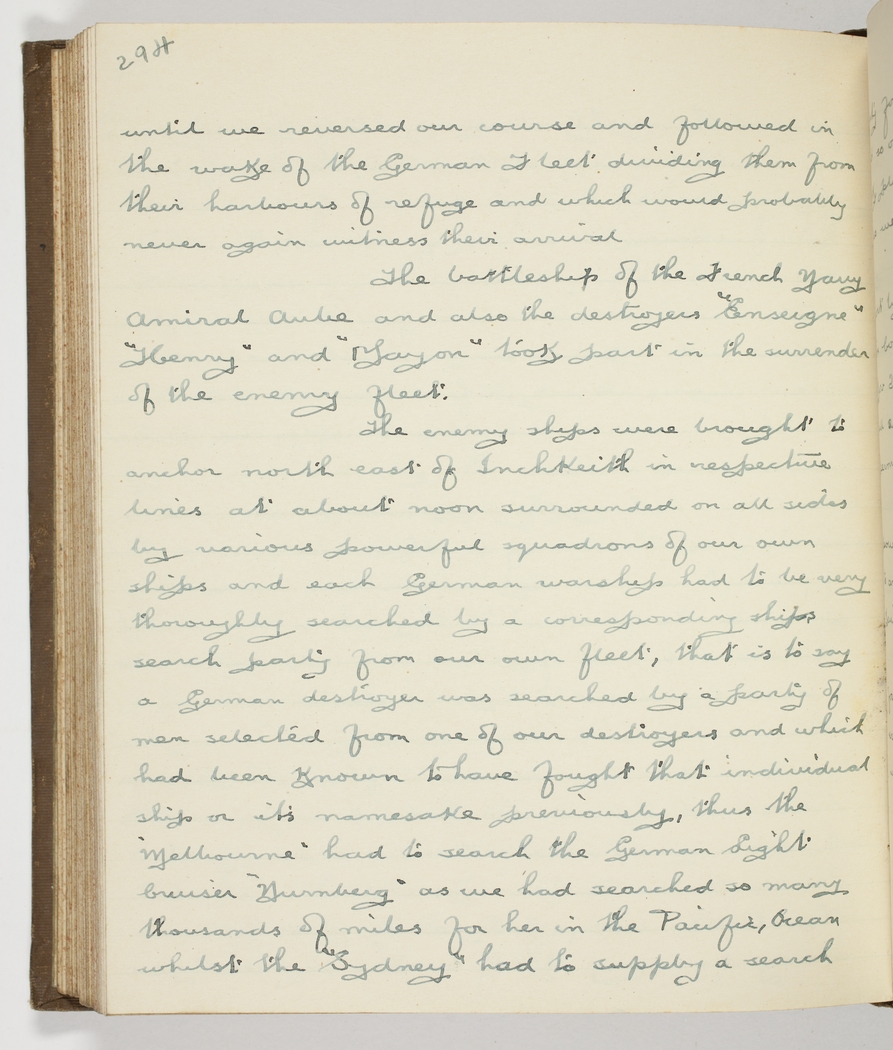 294
until we reversed our course and followed in
the wake of the German Fleet dividing them from
their harbours of refuge and which would probably
never again witness their arrival
The battleship of the French Navy
Amiral Aube and also the destroyers "Enseigne"
"Henry" and "Mayon" took part in the surrender
of the enemy fleet.
The enemy ships were brought to
anchor north east of InchKeith in respective
lines at about noon surrounded on all sides
by various powerful squadrons of our own
ships and each German warship had to be very
thoroughly searched by a corresponding ships
search party from our own fleet, that is to say
a German destroyer was searched by a party of
men selected from one of our destroyers and which
had been known to have fought that individual
ship or its namesake previously, thus the
"Melbourne" had to search the German Light
Cruiser "Nurnberg" as we had searched so many
thousands of miles for her in the Pacific, Ocean
whilst the "Sydney" had to supply a search